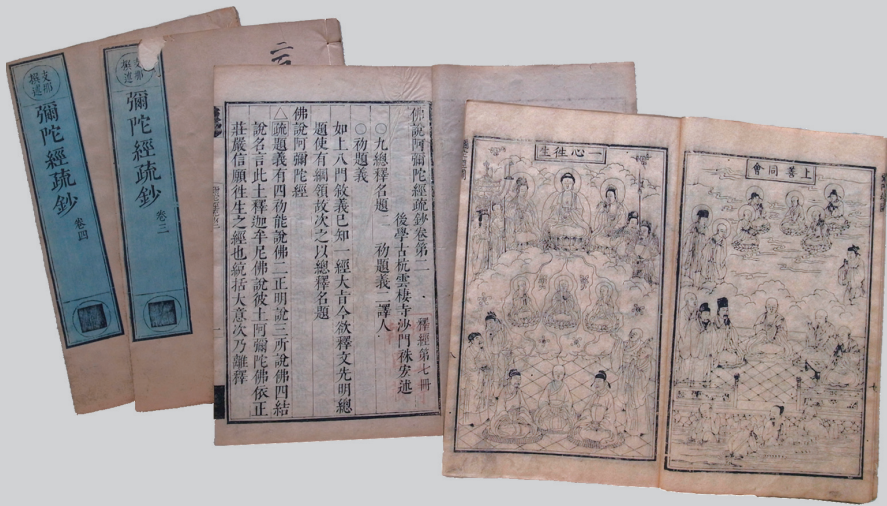 支那
撰述
彌陀經疏鈔 卷四
支那
撰述
彌陀經疏鈔 卷三
佛說阿彌陀經疏鈔卷第二
釋經第七冊
後學古杭雲棲寺沙門袾宏述
○九總釋名題 初題義二譯人
○初題義
如上八門敘義已知一經大旨今欲釋文先明總
題使有綱領故次之以總釋名題
佛說阿彌陀經
△疏題義有四初能說佛二正明說三所說佛四結
說名言此土釋迦牟尼佛說彼土阿彌陀佛依正
莊嚴信願徃生之經也統括大意次乃離釋
上善同會
一心徃生